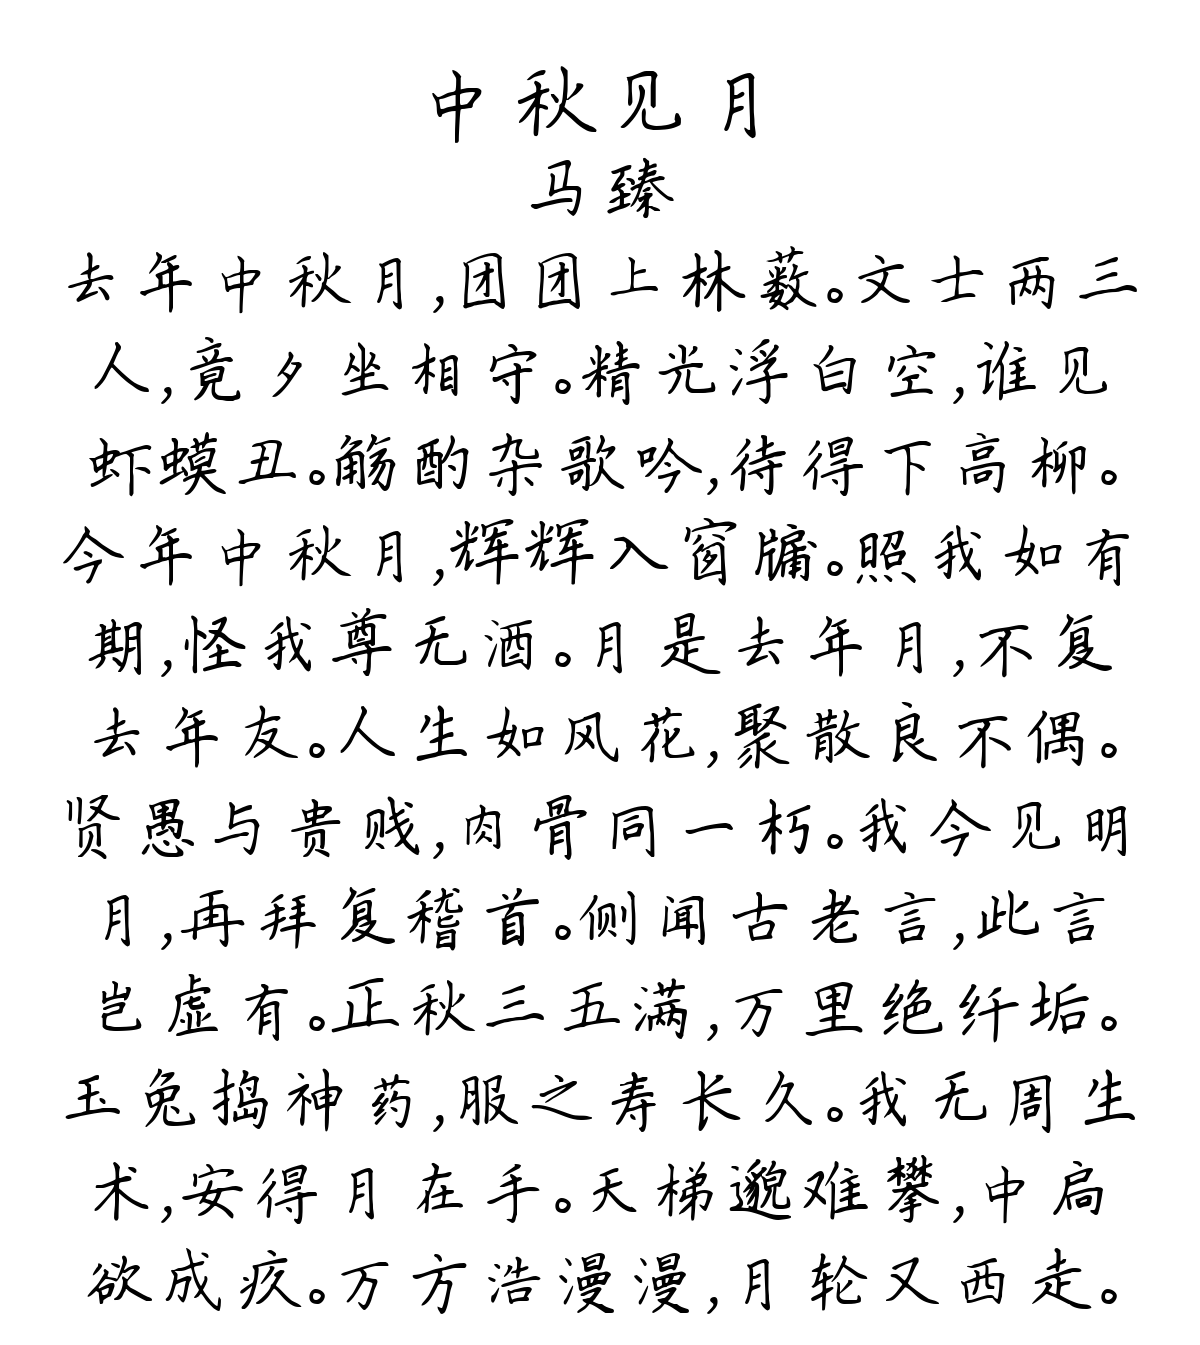 中秋见月
马臻
去年中秋月,团团上林薮。文士两三
人,竟夕坐相守。精光浮白空,谁见
虾蟆丑。觞酌杂歌吟,待得下高柳。
今年中秋月,辉辉入窗牖。照我如有
期,怪我尊无酒。月是去年月,不复
去年友。人生如风花,聚散良不偶。
贤愚与贵贱,肉骨同一朽。我今见明
月,再拜复稽首。侧闻古老言,此言
岂虚有。正秋三五满,万里绝纤垢。
玉兔捣神药,服之寿长久。我无周生
术,安得月在手。天梯邈难攀,中扃
欲成疚。万方浩漫漫,月轮又西走。